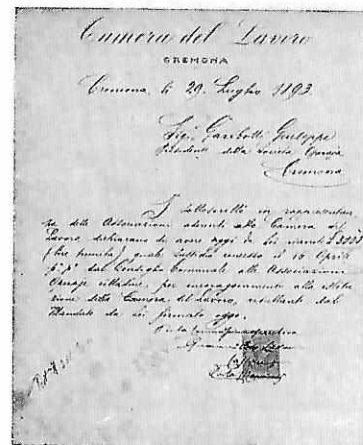 Camera del Lavoro
CREMONA
Cremona, li 29 Luglio 1893
Sig. Garibotti Giuseppe
Presidente della Società Operaja
Cremona
I sottoscritti in rappresentan
za delle Associazioni aderenti alla Camera del
Lavoro, dichiarano di avere oggi da lei
(lire tremila) quale sussidio concesso il 16 Aprile
p. p. dal Consiglio Comunale alle Associazioni
Operaje cittadine, per incoraggiamento alla istitu
zione della Camera del Lavoro, risultante dal
Mandato da lei firmato oggi.